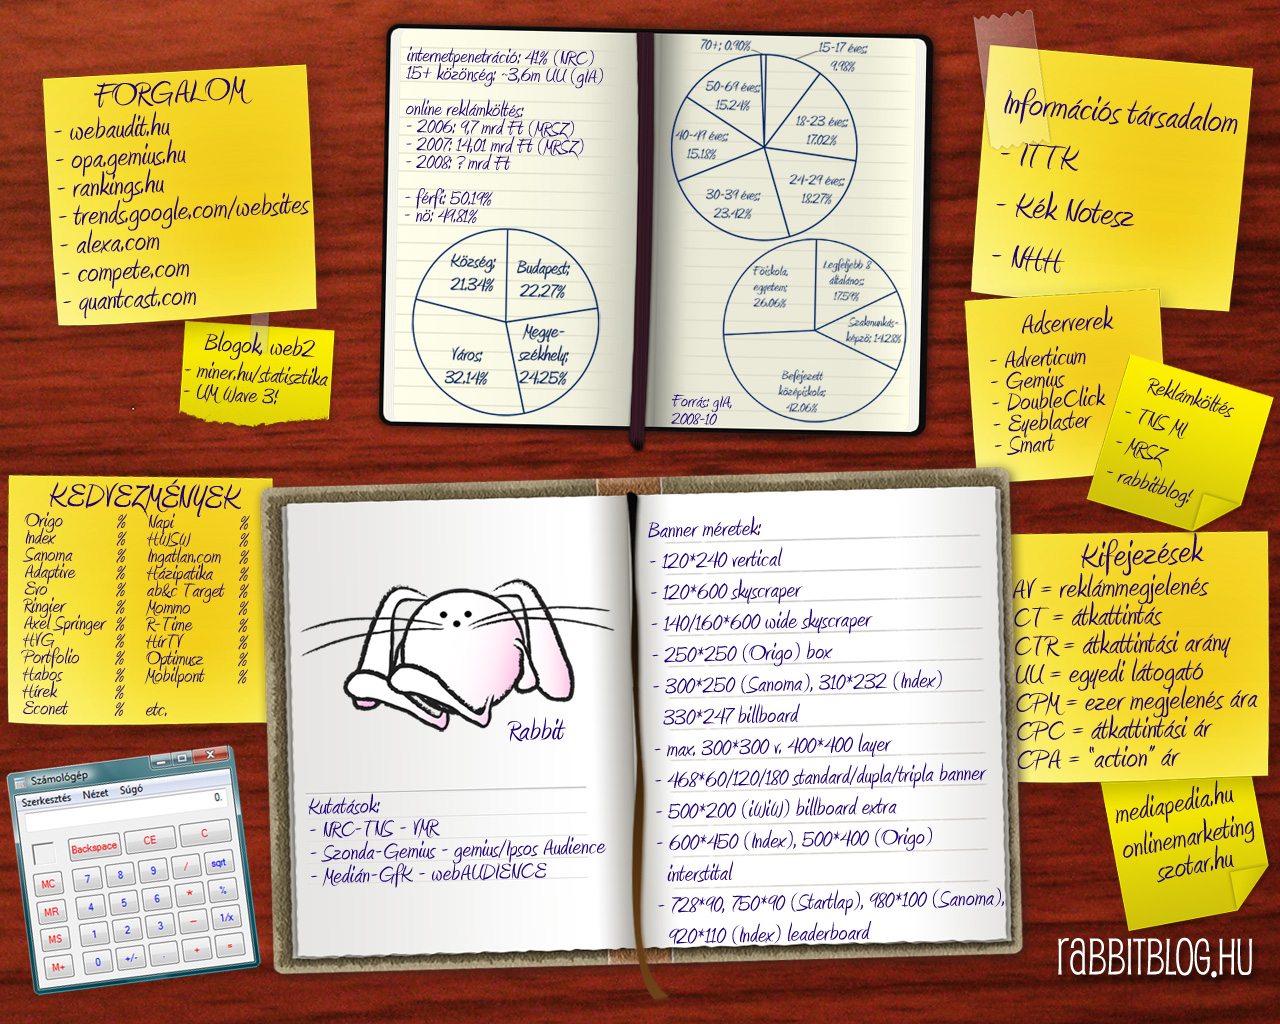 FORGALOM
- webaudit.hu
- opa.gemius.hu
- rankings.hu
- trends.google.com/websites
- alexa.com
- compete.com
- quantcast.com
Blogok, web2
- miner.hu/statisztika
- UM Wave 3!
internetpenetráció: 41% (NRC)
15+ közönség: ~3,6m UU (gIA)
online reklámköltés:
- 2006: 9,7 mrd Ft (MRSZ)
- 2007: 14,01 mrd Ft (MRSZ)
- 2008: ? mrd Ft
- férfi: 50.19%
- nő: 49.81%
Község;
21.34%
Budapest;
22.27%
Város;
32.14%
Megye-
székhely;
24.25%
70+; 0.90%
15-17 éves;
9.98%
50-69 éves;
15.24%
18-23 éves;
17.02%
40-49 éves;
15.18%
24-29 éves;
18.27%
30-39 éves;
23.42%
Főiskola,
egyetem;
26.06%
Legfeljebb 8
általános;
17.59%
Szakmunkás-
képző; 14.28%
Befejezett
középiskola;
42.06%
Forrás: gIA,
2008-10
Információs társadalom
- ITTK
- Kék Notesz
- NHH
Adserverek
- Adverticum
- Gemius
- DoubleClick
- Eyeblaster
- Smart
Reklámköltés
- TNS MI
- MRSZ
- rabbitblog!
KEDVEZMÉNYEK
Origo %
Index %
Sanoma %
Adaptive %
Evo %
Ringier %
Axel Springer %
HVG %
Portfolio %
Habos %
Hírek %
Econet %
Napi %
HWSW %
Ingatlan.com %
Házipatika %
ab&c Target %
Mommo %
R-Time %
HírTV %
Optimusz %
Mobilpont %
etc.
Rabbit
Kutatások:
- NRC-TNS - VMR
- Szonda-Gemius - gemius/Ipsos Audience
- Medián-GfK - webAUDIENCE
Banner méretek:
- 120*240 vertical
- 120*600 skyscraper
- 140/160*600 wide skyscraper
- 250*250 (Origo) box
- 300*250 (Sanoma), 310*232 (Index)
330*247 billboard
- max. 300*300 v. 400*400 layer
- 468*60/120/180 standard/dupla/tripla banner
- 500*200 (iWiW) billboard extra
- 600*450 (Index), 500*400 (Origo)
interstital
- 728*90, 750*90 (Startlap), 980*100 (Sanoma),
920*110 (Index) leaderboard
Kifejezések
AV = reklámmegjelenés
CT = átkattintás
CTR = átkattintási arány
UU = egyedi látogató
CPM = ezer megjelenés ára
CPC = átkattintási ár
CPA = "action" ár
mediapedia.hu
onlinemarketing
szotar.hu
Számológép
Szerkesztés Nézet Súgó
0.
Backspace CE C
MC 7 8 9 / sqrt
MR 4 5 6 * %
MS 1 2 3 - 1/x
M+ 0 +/- . + =
RABBITBLOG.HU